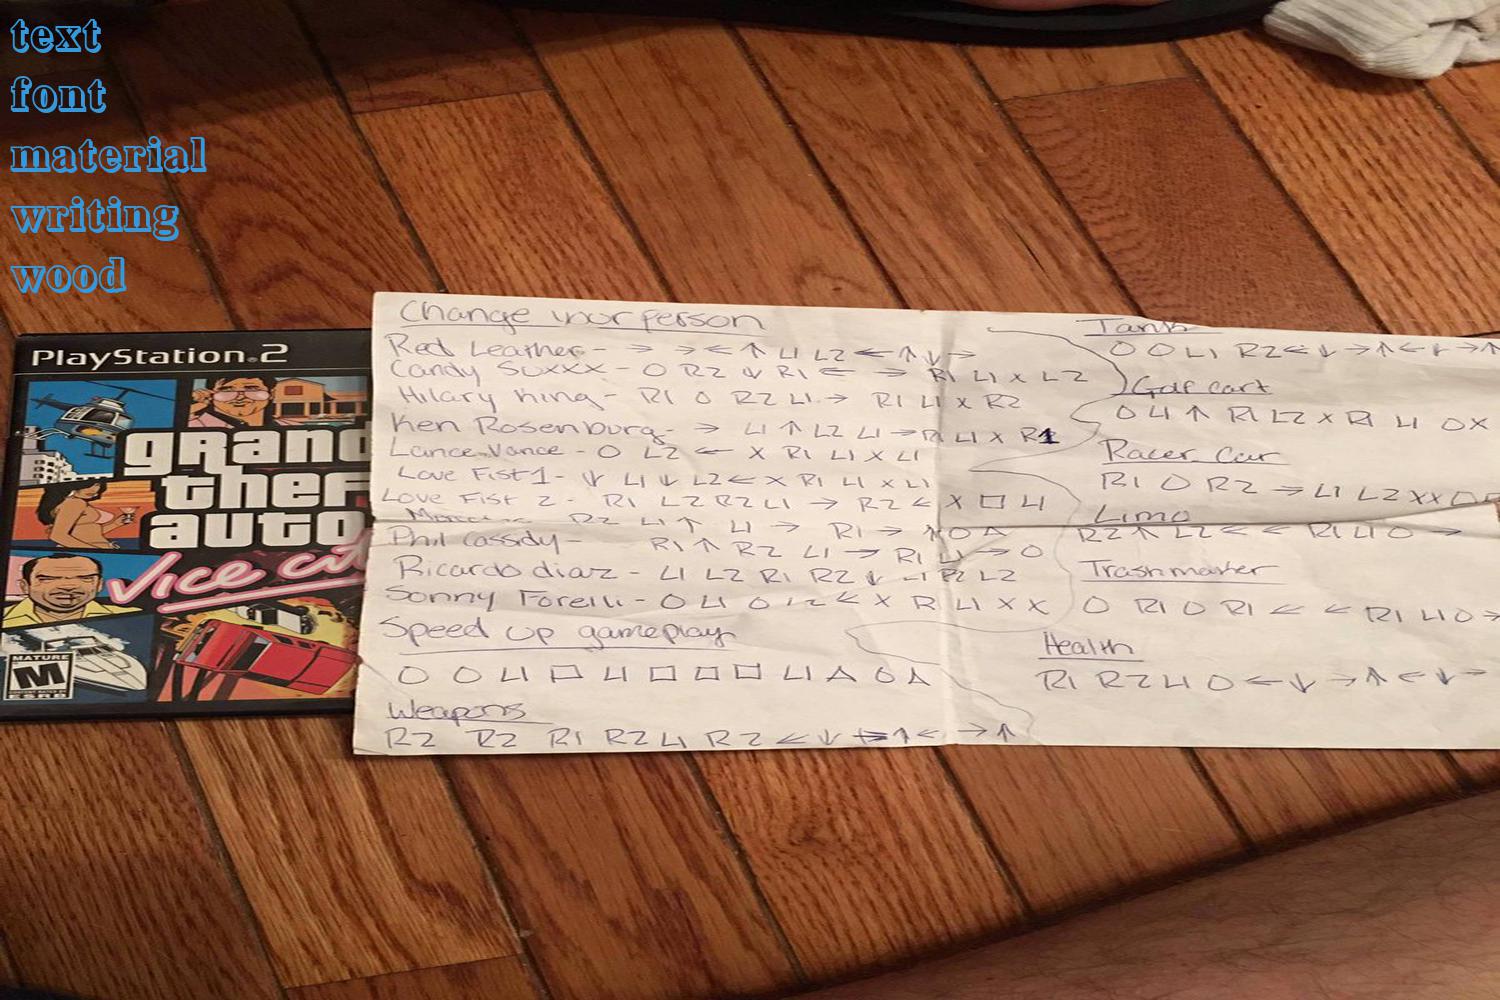 text
font
material
writing
wood
PlayStation.2
grand
theft
auto
Vice City
MATURE
M
ESRB
Change your person
Red Leather - → → ← ↑ L1 L2 ← ↑ ↓ →
Candy Suxxx - O R2 ↓ R1 ← → R1 L1 x L2
Hilary King - R1 O R2 L1 → R1 L1 x R2
Ken Rosenburg - → L1 ↑ L2 L1 → R1 L1 x R1
Lance Vance - O L2 ← x R1 L1 x L1
Love Fist 1 - ↓ L1 ↓ L2 ← x R1 L1 x L1
Love Fist 2 - R1 L2 R2 L1 → R2 ← x □ L1
R2 L1 ↑ L1 → R1 → ↑ O △
Phil Cassidy - R1 ↑ R2 L1 → R1 L1 → O
Ricardo diaz - L1 L2 R1 R2 ↓ L1 R2 L2
Sonny Forelli - O L1 O L2 ← x R1 L1 x x
Speed up gameplay
O O L1 □ L1 □ □ □ L1 △ O △
Weapons
R2 R2 R1 R2 L1 R2 ← ↓ → ↑ ← → ↑
Tank
O O L1 R2 ← ↓ → ↑ ← ↓ → ↑
Golf cart
O L1 ↑ R1 L2 x R1 L1 O x
Racer Car
R1 O R2 → L1 L2 x x □
Limo
R2 ↑ L2 ← ← R1 L1 O →
Trashmaster
O R1 O R1 ← ← R1 L1 O →
Health
R1 R2 L1 O ← ↓ → ↑ ← ↓ →